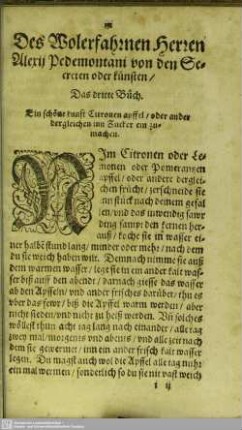 Des Wolerfahrnen Herren
Alexij Pedemontani von den Se-
creten oder künsten/
Das dritte Büch.
Ein schöne kunst Citronen apffel/ oder ander
dergleichen inn Zucker ein zu-
machen.
NIm Citronen oder Le-
monen oder Pomerantzen
apffel/ oder andere dergleichen
frücht/ zerschneide sie
inn stück nach deinem gefal-
len/ vnd das inwendig sawr
ding sampt den kernen her-
auß/ koche sie in wasser ei-
ner halbe stund lang/ minder oder mehr/ nach dem
du sie weich haben wilt. Demnach nimme sie auß
dem warmen wasser/ lege sie in ein ander kalt was-
ser biß auff den abendt/ darnach giesse das wasser
ab den Apffeln/ vnd ander frisches darüber/ thu es
vber das fewr/ biß die Apffel warm werden/ aber
nicht sieden/ vnd nicht zu heiß werden. Diß solches
acht tag lang nach einander/ alle tag
zwey mal/ morgens vnd abents/ vnd alle zeit nach
dem sie gewermet/ inn ein ander frisch kalt wasser
legen. Du magst auch wol die Apffel alle tag nuhr
ein mal wermen/ sonderlich so du sie nit vast weich